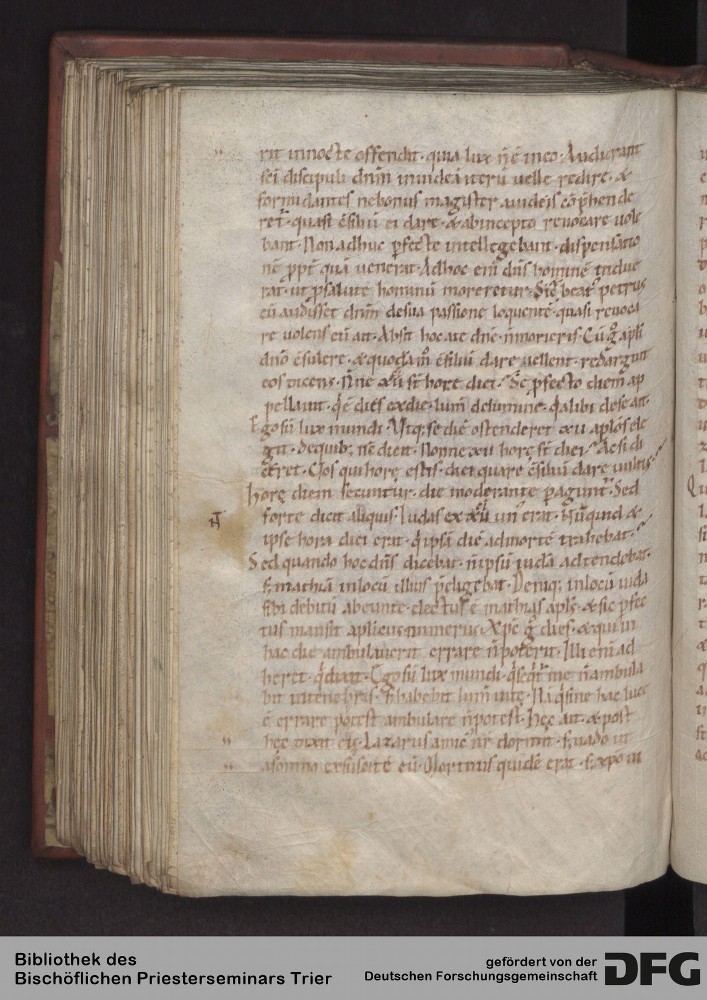 rit in nocte offendit · quia lux n̄ ē in eo · Audierant
sc̄i discipuli dn̄m in iudeā iterū uelle redire · &
formidantes ne bonus magister a iudeis cōp̄hende
ret᷑ · quasi c̄siliū ei dare · & ab incepto reuocare uole
bant · Non adhuc ꝑfecte intellegebant · dispensatio
nē ꝓpt̄ quā uenerat · Ad hoc eni dn̄s hominē indue
rat · ut ꝓ salute hominū moreretur · Sic̄ beat᷒ petrus
cū audisset dn̄m de sua passione loquentē · quasi reuoca
re uolens eū ait · Absit hoc a te dn̄e · n̄ morieris · Cū g̊ ap̄li
dn̄o c̄sulere · & quodam̄ c̄siliū dare uellent · redarguit
eos dicens · Nōne xii st̄ hore diei · Se ꝓfecto diem ap
pellauit · q̄ ē dies ex die · lum̄ de lumine · q̄ alibi de se ait ·
Ego sū lux mundi · Atq; se diē ostenderet xii aplōs ele
git · De quib; n̄c dicit · Nonne xii horę st̄ diei · Ac si di
ceret · Uos qui horę estis · diei quare c̄siliū dare uultis
horę diem secuntur · die moderante ꝑagunt᷑ · Sed
forte dicit aliquis · Iudas ex xii un᷒ erat · Nūquid &
ipse hora diei erat · q̄ ipsū diē ad mortē trahebat ·
Sed quando hoc dn̄s dicebat · n̄ ipsū iudā adtendebat ·
s; mathiā in locū illius p̄eligebat · Deniq; in locū iuda
sibi debitū abeunte · electus ē mathias apl̄s · & sic ꝑfec
tus mansit aplicus numerus · Xp̄c g̊ dies · & qui in
hac die ambulauerit errare n̄ poterit · Illi eni ad
heret · q̄ dicit · Ego sū lux mundi · q̄ seqt᷑ me n̄ ambula
bit in tenebris · s; habebit lum̄ uitę · Na q̄ sine hac luce
ē errare potest ambulare n̄ potest · Hęc ait · & post
hęc dixit eis · Lazarus amic᷒ nr̄ dormit · s; uado ut
a somno exsuscitē eū · Mortuus quidē erat · s; xp̄o in
Bibliothek des
Bischöflichen Priesterseminars Trier
gefördert von der
Deutschen Forschungsgemeinschaft
DFG